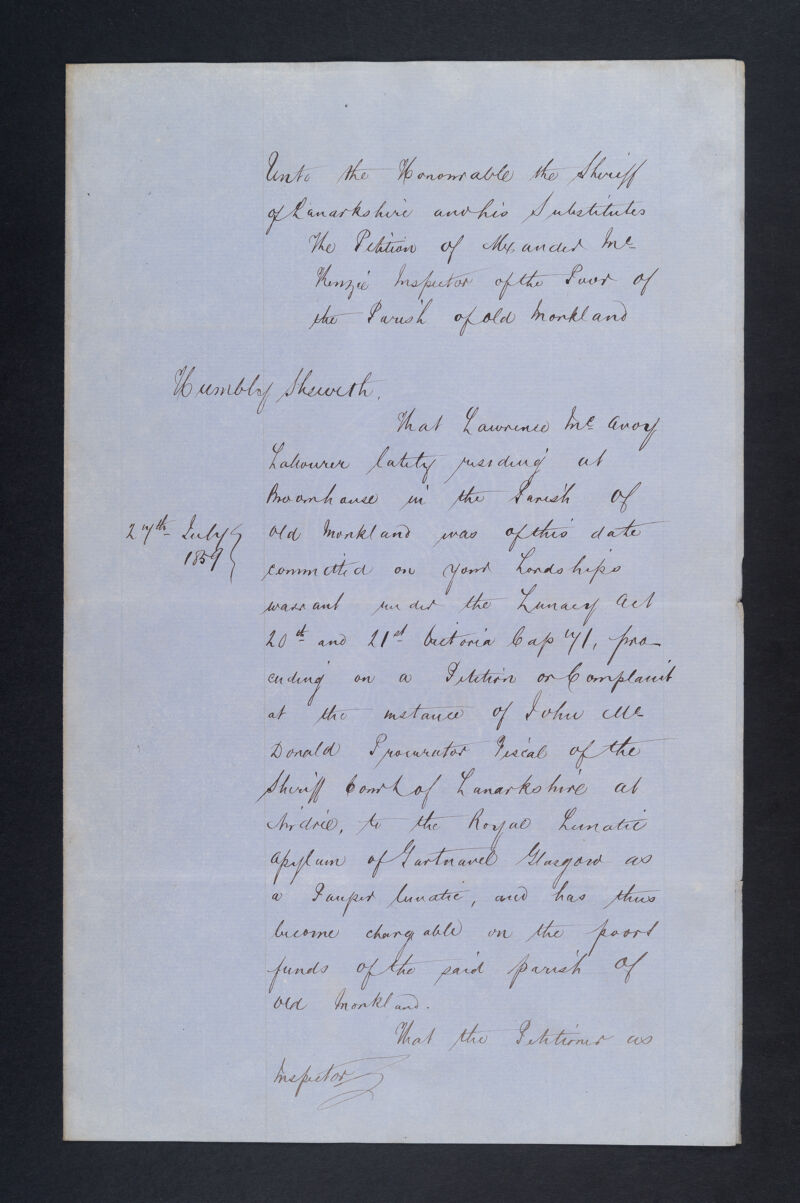 Unto the Honourable the Sheriff
of Lanarkshire and his Substitutes
The Petition of Alexander Mc
Kenzie Inspector of the Poor of
the Parish of Old Monkland
Humbly Sheweth.
That Lawrence Mc Avoy
Labourer lately residing at
Broomhouse in the Parish of
27th July
1859
Old Monkland was of this date
committed on your Lordships
warrant under the Lunacy Act
20th and 21st Victoria Cap 71, pro-
ceeding on a Petition or Complaint
at the instance of John Mc
Donald Procurator Fiscal of the
Sheriff Court of Lanarkshire at
Airdrie, to the Royal Lunatic
Asylum of Gartnavel Glasgow as
a Pauper lunatic, and has thus
become chargable on the poors
funds of the said parish of
Old Monkland.
That the Petitioner as
Inspector